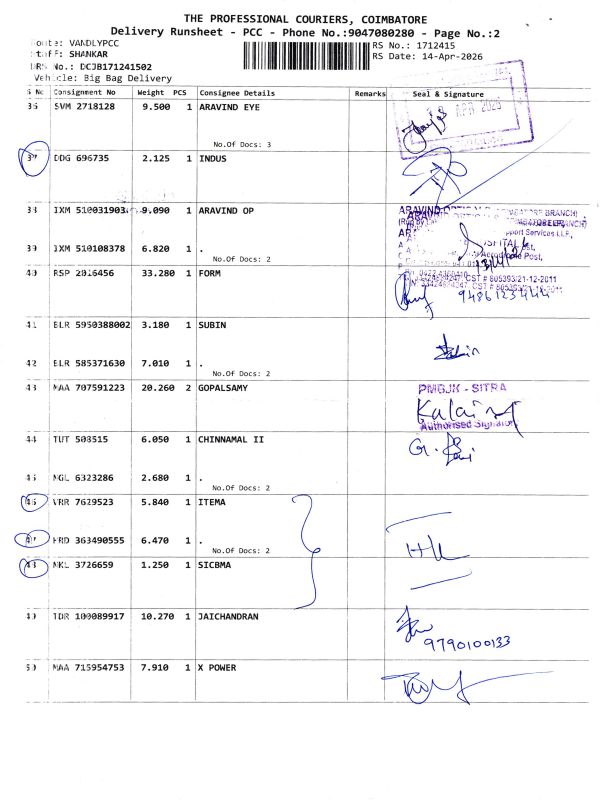 THE PROFESSIONAL COURIERS, COIMBATORE
Delivery Runsheet - PCC - Phone No.:9047080280 - Page No.:2
Route: VANDLYPCC
Staff: SHANKAR
DRS No.: DCJB171241502
Vehicle: Big Bag Delivery
RS No.: 1712415
RS Date: 14-Apr-2026
S No Consignment No Weight PCS Consignee Details Remarks Seal & Signature
36 SVM 2718128 9.500 1 ARAVIND EYE
APR 2026
No.Of Docs: 3
37 DDG 696735 2.125 1 INDUS
38 IXM 510031903 9.090 1 ARAVIND OP
39 IXM 510108378 6.820 1 .
No.Of Docs: 2
40 RSP 2016456 33.280 1 FORM
CST # 805393/21-12-2011
9486123444
41 BLR 5950388002 3.180 1 SUBIN
42 BLR 585371630 7.010 1 .
No.Of Docs: 2
43 MAA 707591223 20.260 2 GOPALSAMY
PMBJK - SITRA
Authorised Signatory
44 TUT 503515 6.050 1 CHINNAMAL II
45 NGL 6323286 2.680 1 .
No.Of Docs: 2
46 VRR 7629523 5.840 1 ITEMA
47 KRD 363490555 6.470 1 .
No.Of Docs: 2
48 NKL 3726659 1.250 1 SICBMA
49 TDR 100089917 10.270 1 JAICHANDRAN
9790100133
50 MAA 715954753 7.910 1 X POWER